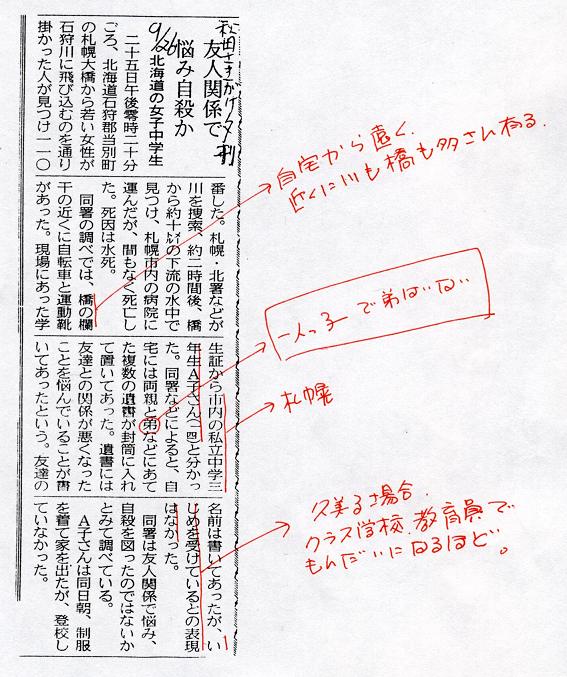 秋田さきがけ 夕刊
9/26
友人関係で
悩み自殺か
北海道の女子中学生
二十五日午後零時二十分
ごろ、北海道石狩郡当別町
の札幌大橋から若い女性が
石狩川に飛び込むのを通り
掛かった人が見つけ一一〇
番した。札幌・北署などが
川を捜索、約二時間後、橋
から約十㍍の下流の水中で
見つけ、札幌市内の病院に
運んだが、間もなく死亡し
た。死因は水死。
同署の調べでは、橋の欄
干の近くに自転車と運動靴
があった。現場にあった学
生証から市内の私立中学三
年生A子さん(一四)と分かっ
た。同署などによると、自
宅には両親と弟などにあて
た複数の遺書が封筒に入れ
て置いてあった。遺書には
友達との関係が悪くなった
ことを悩んでいることが書
いてあったという。友達の
名前は書いてあったが、い
じめを受けているとの表現
はなかった。
同署は友人関係で悩み、
自殺を図ったのではないか
とみて調べている。
A子さんは同日朝、制服
を着て家を出たが、登校し
ていなかった。
自宅から遠く、
近くに川も橋も多さん有る。
一人っ子で弟はいない
札幌
久美る場合、
クラス学校、教育員で
もんだいになるほど。